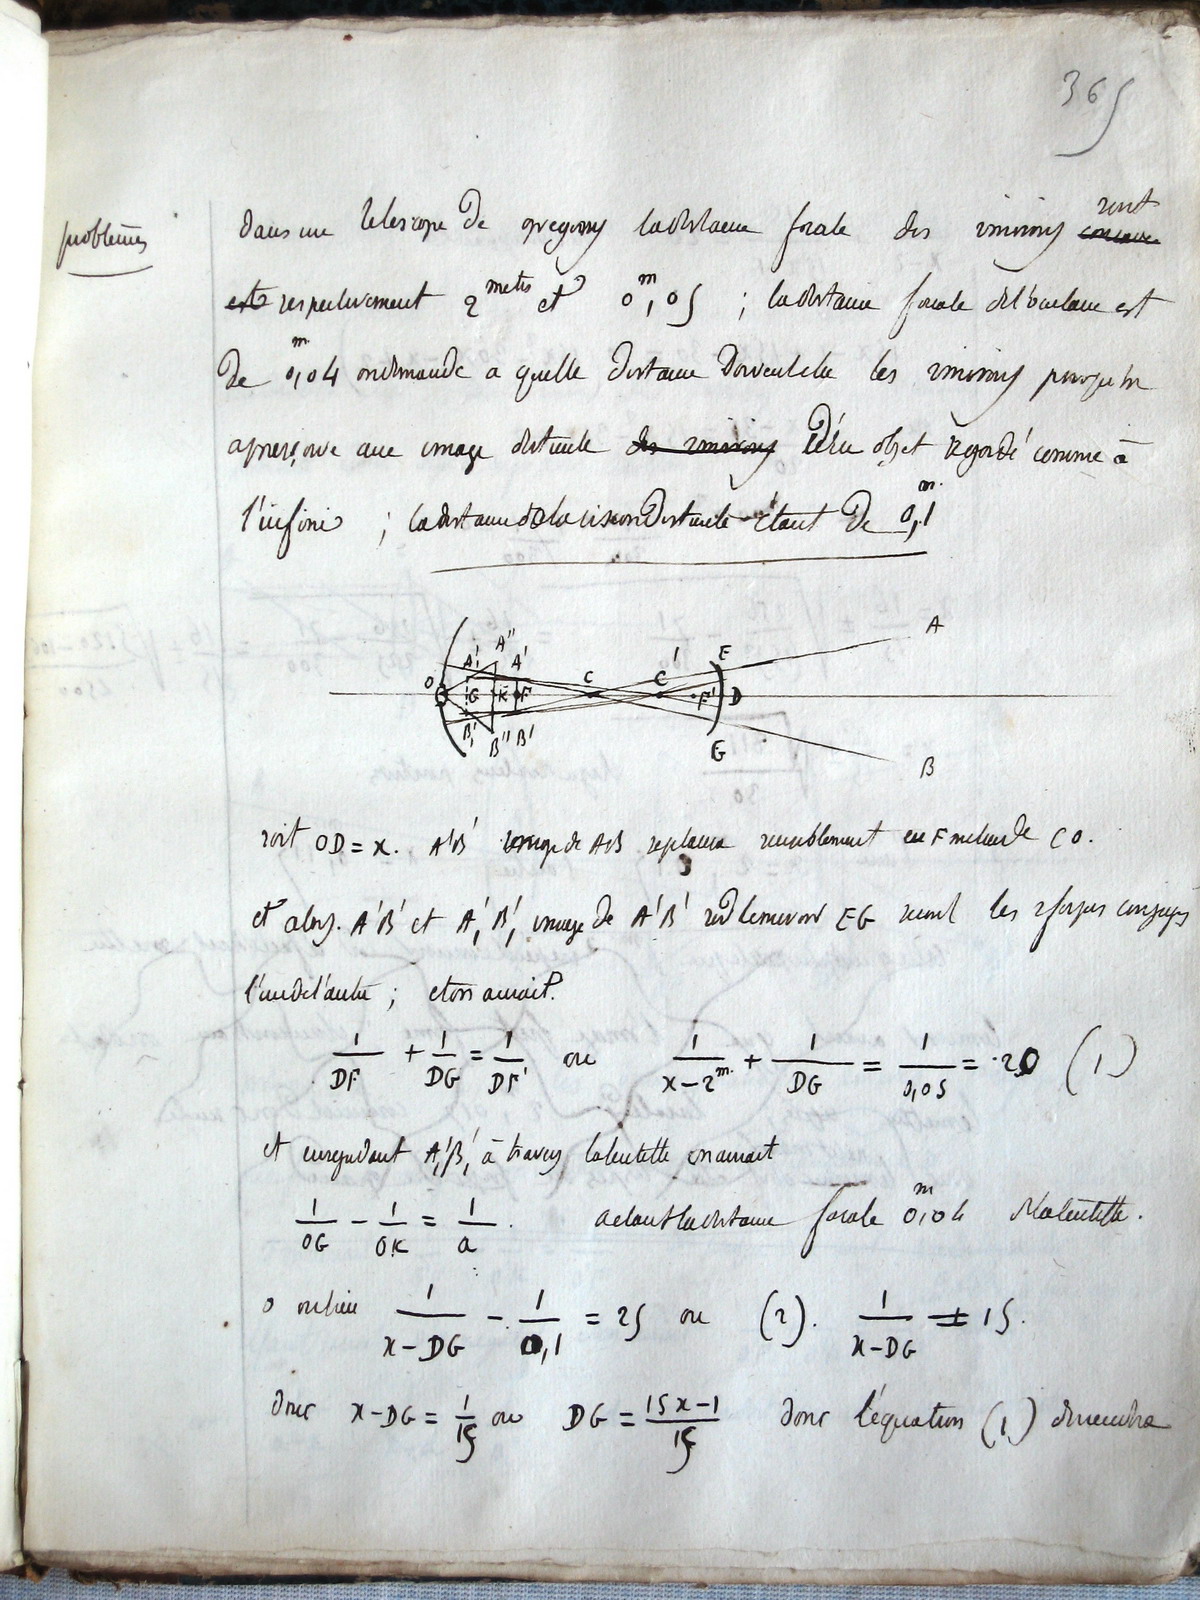 365
problêmes
dans un telescope de gregory la distance focale des miroirs concave sont
est respectivement 2 metres et 0,05 m ; la distance focale de l'oculaire est
de 0,04 m on demande a quelle distance doivent etre les miroirs pour qu'on
aperçoive une image distincte des miroirs d'un objet regardé comme à
l'infini ; la distance de la vision distincte étant de 0,1 m.
A
B
A'' A' A'₁
O G K F C C' F' D
E
G
B'₁ B'' B'
soit OD = x. A'B' image de AB se placera sensiblement en F milieu de CO.
et alors A'B' et A'₁B'₁ image de A'B' sur le miroir EG seront les foyers conjugués
l'un de l'autre ; et on aurait.
1/DF + 1/DG = 1/DF' ou 1/(x-2m.) + 1/DG = 1/0,05 = 20 (1)
et en regardant A'₁B'₁ à travers la lentille on aurait
1/OG - 1/OK = 1/a. a étant la distance focale 0,04 m de la lentille.
ou bien 1/(x-DG) - 1/0,1 = 25 ou (2). 1/(x-DG) = 15.
donc x-DG = 1/15 ou DG = (15x-1)/15 donc l'équation (1) deviendra